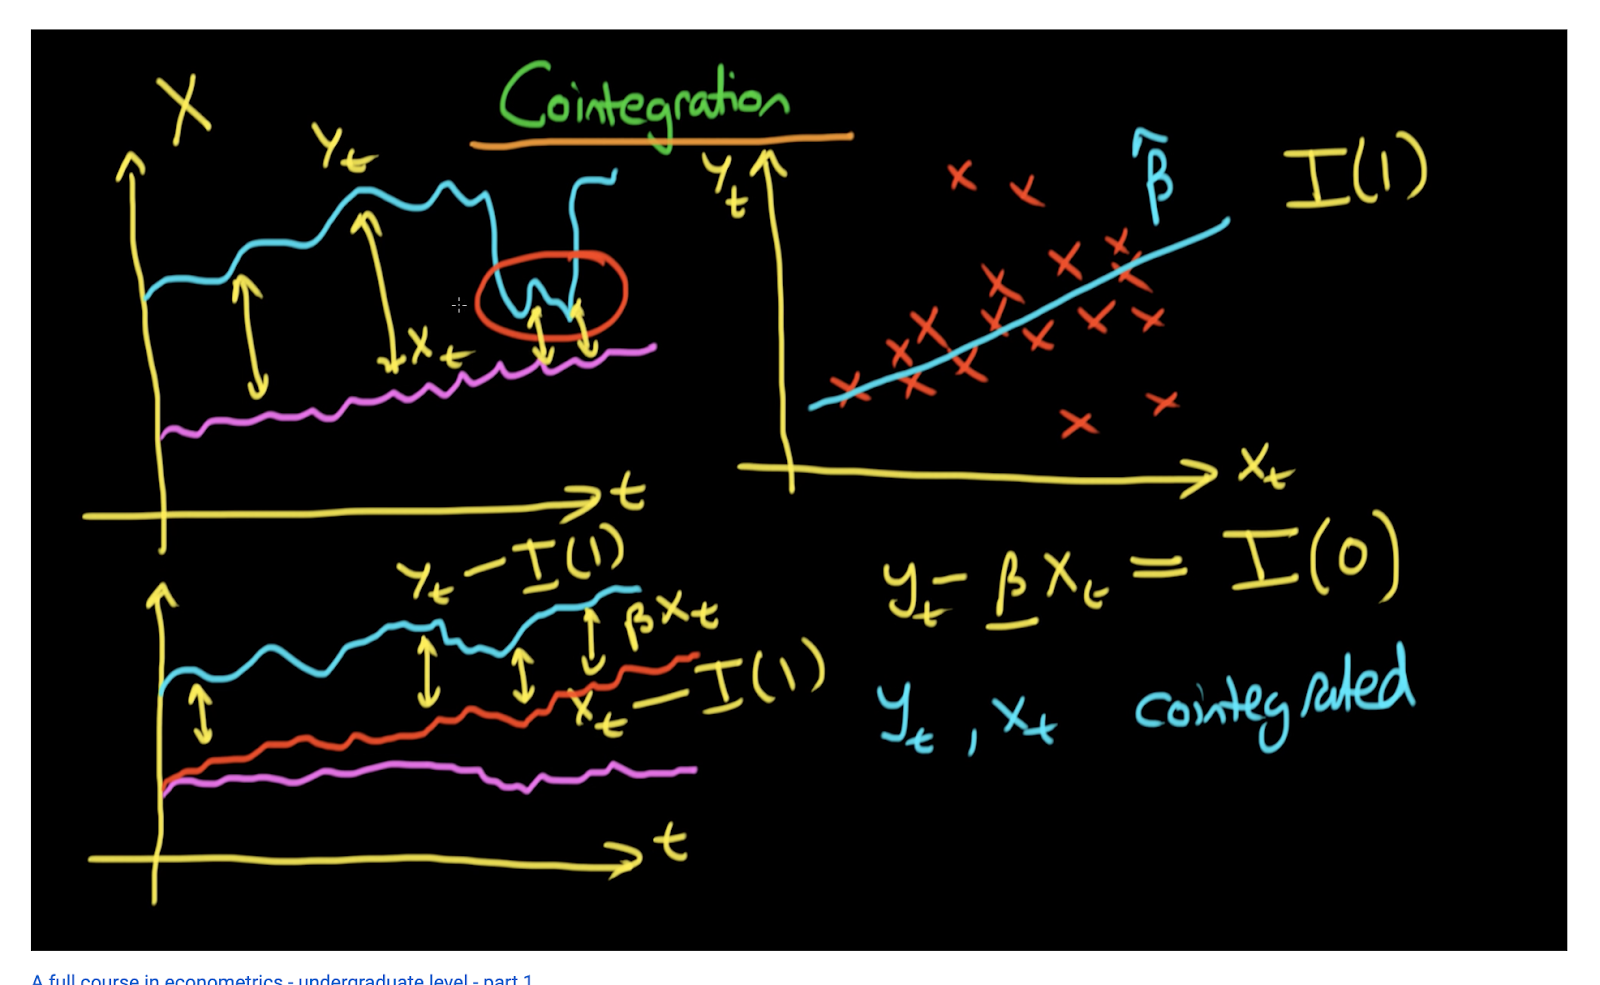 Cointegration
X
Yt
Xt
t
Yt
β̂
I(1)
Xt
Yt — I(1)
βXt
Xt — I(1)
t
yt - βXt = I(0)
yt, xt cointegrated
A full course in econometrics - undergraduate level - part 1